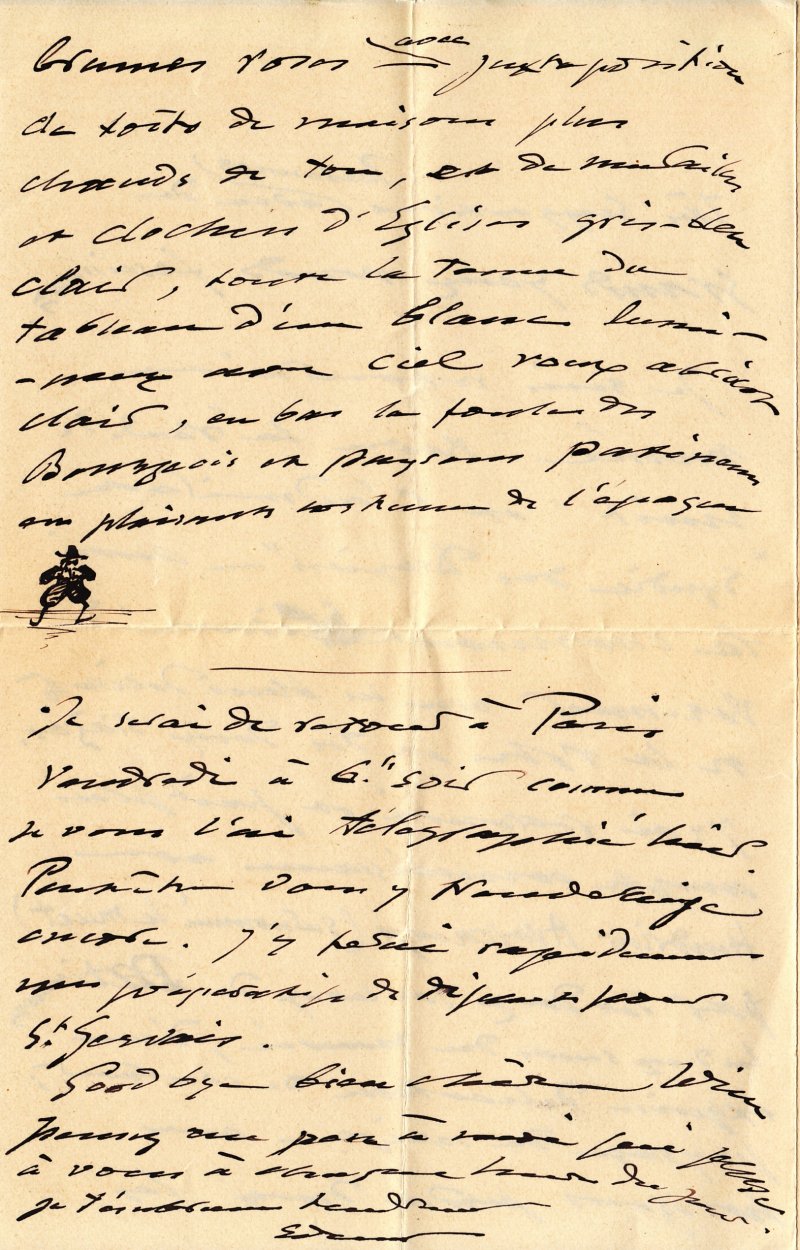 brumes roses avec juxtaposition
de toits de maisons plus
chauds de ton, et de murailles
et clochers d'Eglises gris-bleu
clair, toute la tenue du
tableau d'un blanc lumi-
-neux avec ciel roux
clair, en bas la foule des
Bourgeois et paysans
en plaisants costumes de l'époque
Je serai de retour à Paris
Vendredi à 6.h soir comme
je vous l'ai télégraphié hier.
Peut-être vous y
encore. J'y ferai rapidement
mes préparatifs de départ pour
St. Gervais.
Good bye bien chère
pensez un peu à moi qui pense
à vous à chaque heure du jour.
je t'embrasse tendrement